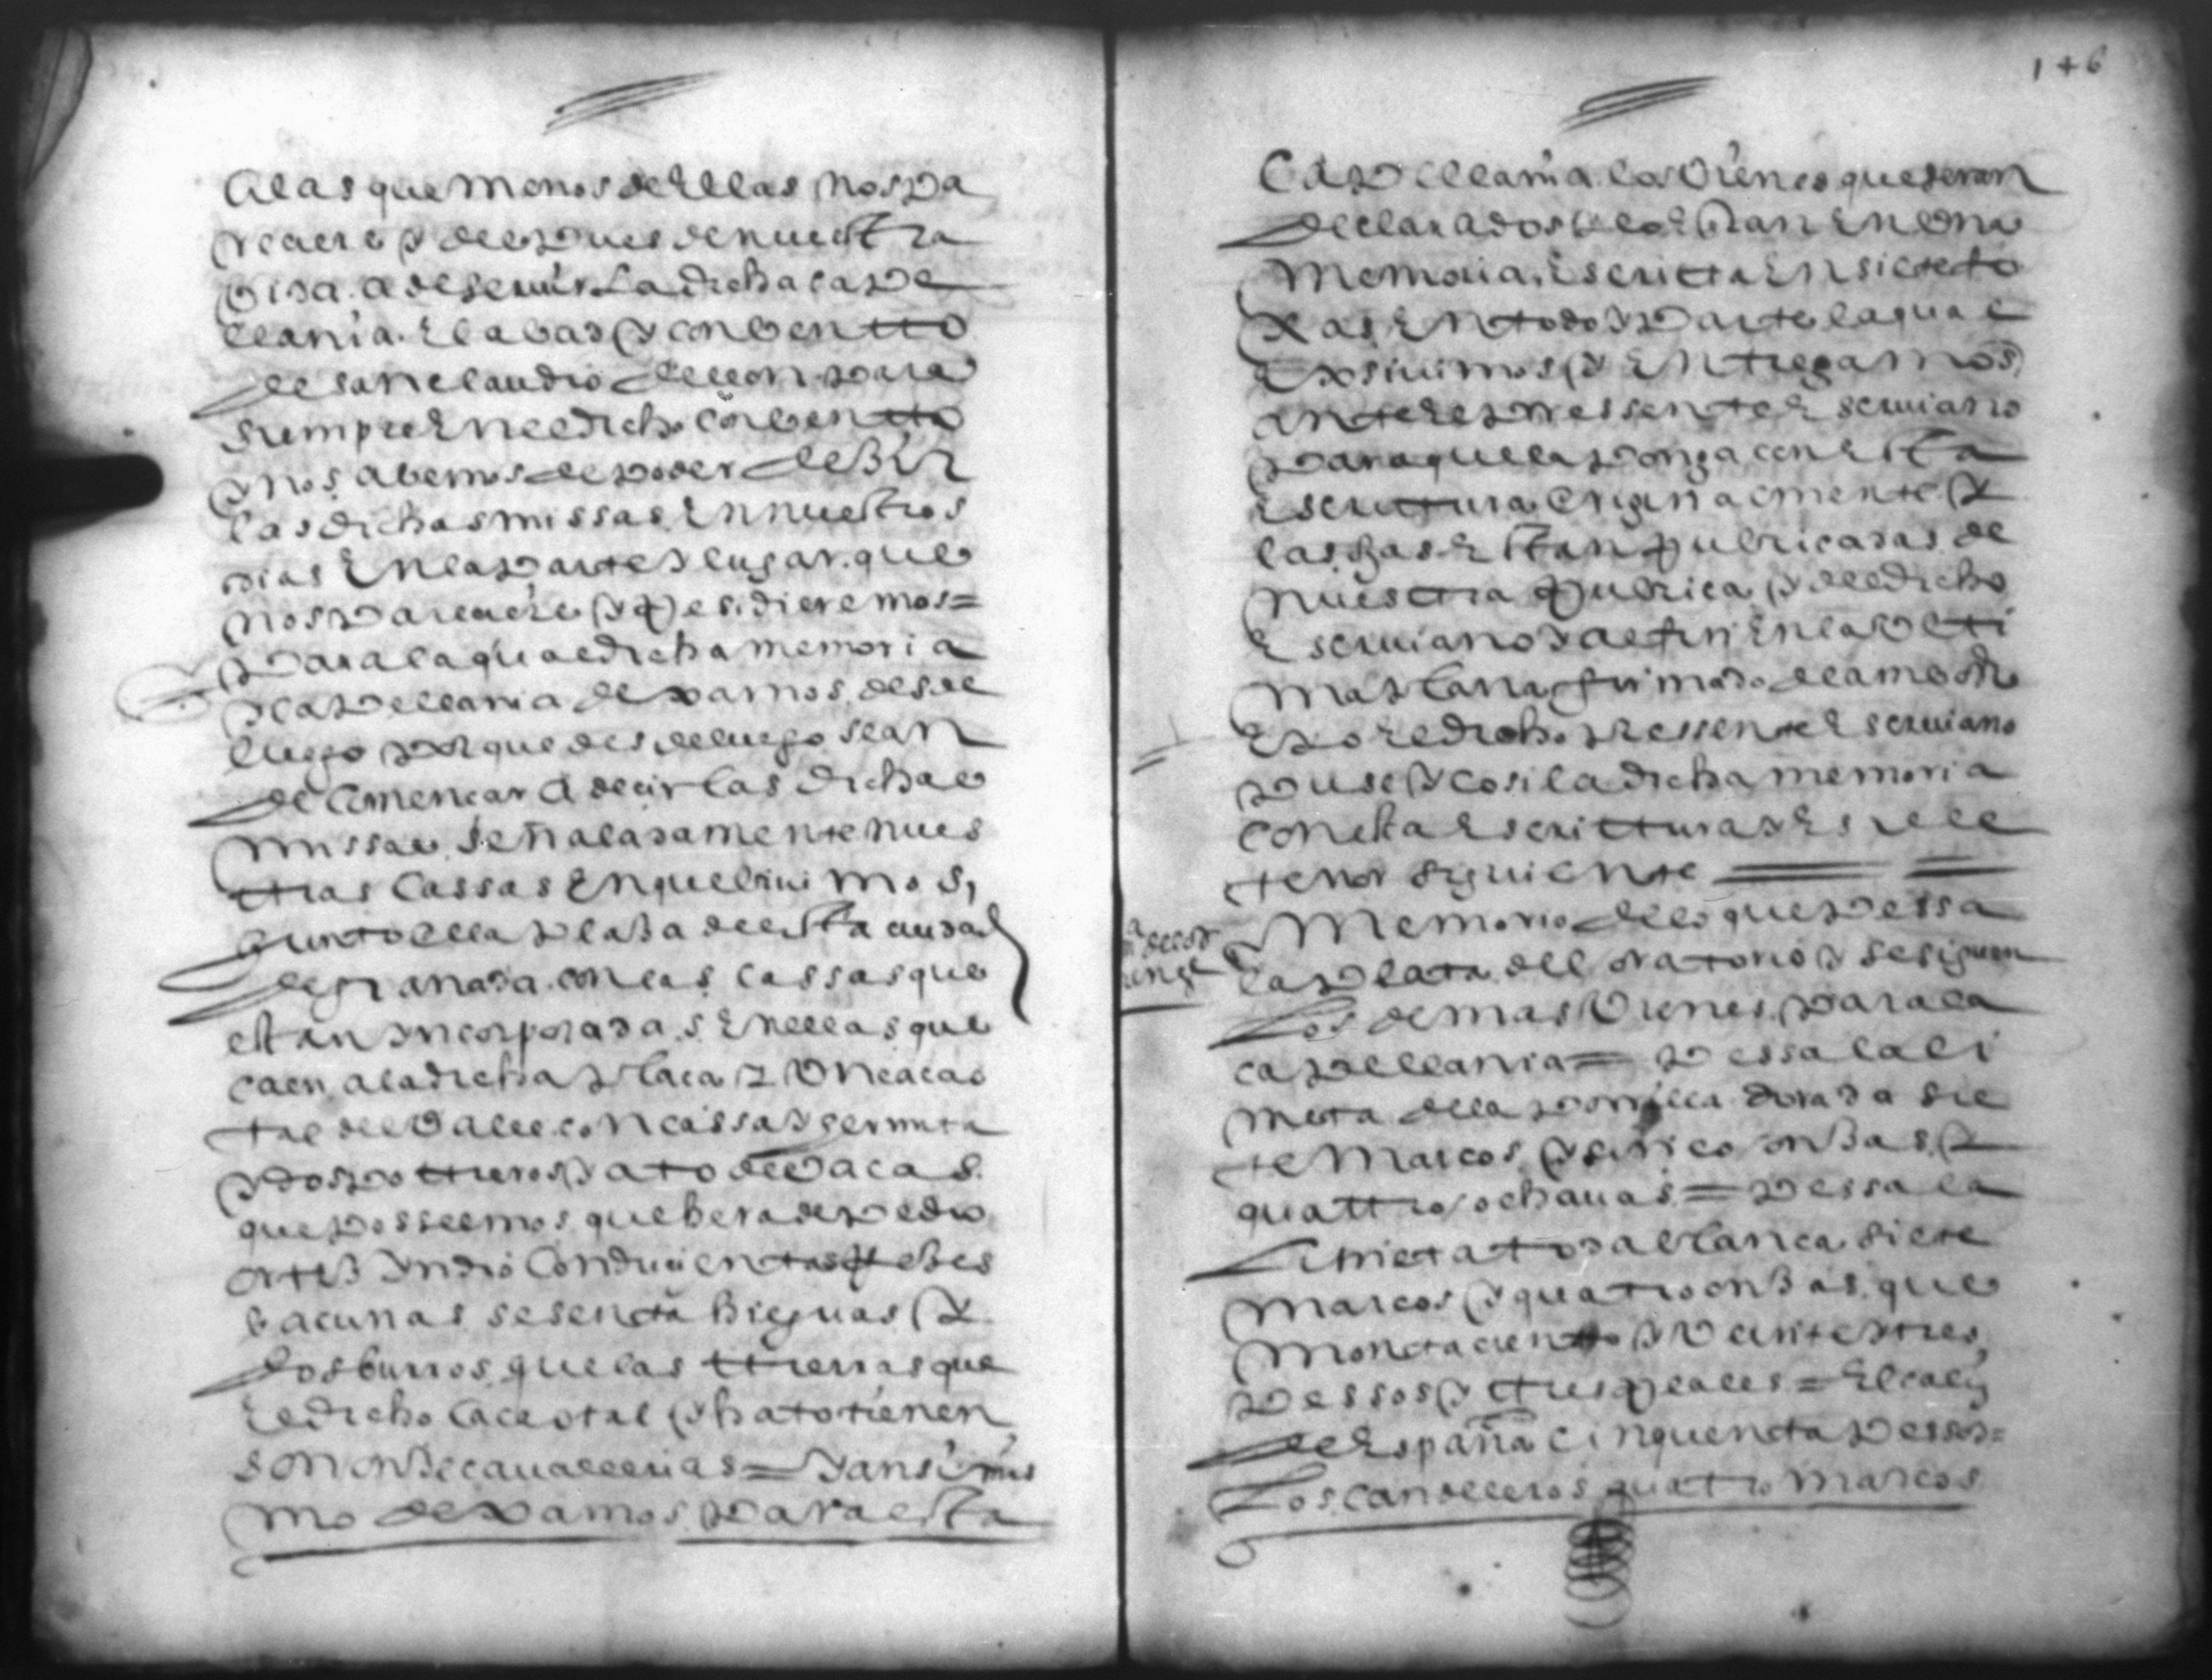 a las que menos de ellas nos pa
reciere y despues de nuestra
vida a de seruir la dicha cape
llania el abad y conbentto
de san claudio de leon para
siempre en el dicho conbentto
y nos abemos de poder dezir
las dichas missas en nuestros
dias en la parte y lugar que
nos pareciere y residieremos =
para la qual dicha memoria
y capellania dexamos desde
luego porque desde luego sean
de comencar a decir las dichas
missas señaladamente nues
ttras cassas en que biuimos,
junto a la plaza de esta ciudad
de granada con las cassas que
estan yncorporadas en ellas que
caen a la dicha placa y vn cacao
tal del valle con cassa y
y dos pottreros y ato de vacas
que posseemos que bera de pedro
ortiz yndio con ducientas rezes
bacunas sesenta hieguas y
dos burros que las ttierras que
el dicho cacaotal y hato tienen
son onze cauallerias = y ansimis
mo dexamos para esta
146
capellania los vienes que seran
declarados y lo estan en vna
memoria escritta en siete fo
xas en todo y parte la qual
exsiuimos y entregamos
ante el pressente escriuano
para que la ponga con esta
escrittura originalmente y
las fojas estan rubricadas de
nuestra rubrica y del dicho
escriuano y al fin en la vlti
ma plana firmado de ambos
e yo el dicho pressente escriuano
puse y cosi la dicha memoria
con esta escrittura y es del
tenor siguiente
Memoria de lo que pessa
la plata del oratorio y se siguen
los demas vienes para la
capellania = pessa la li
meta de la dorada sie
te marcos y cinco onzas y
quattro ochauas = pessa la
limeta toda blanca siete
marcos y quatro onzas que
monta ciento y veinte y tres
pessos y ttres reales = el caliz
de españa cinquenta pessos =
los candeleros quatro marcos